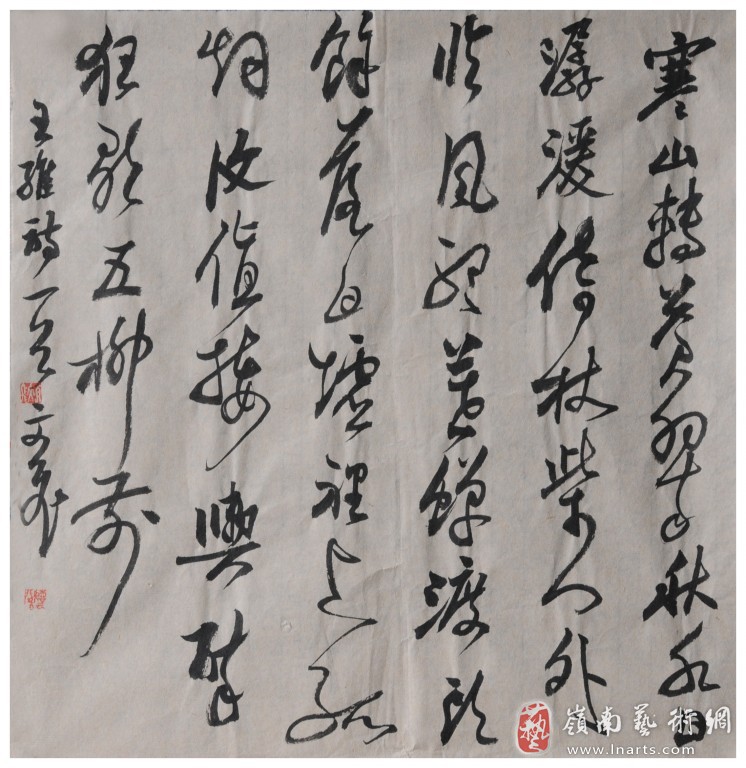 寒山轉蒼翠秋水日
潺湲倚杖柴門外
臨風聽暮蟬渡頭
餘落日墟裡上孤
烟復值接輿醉
狂歌五柳前
王維詩一首 文
嶺南藝術網
www.lnarts.com